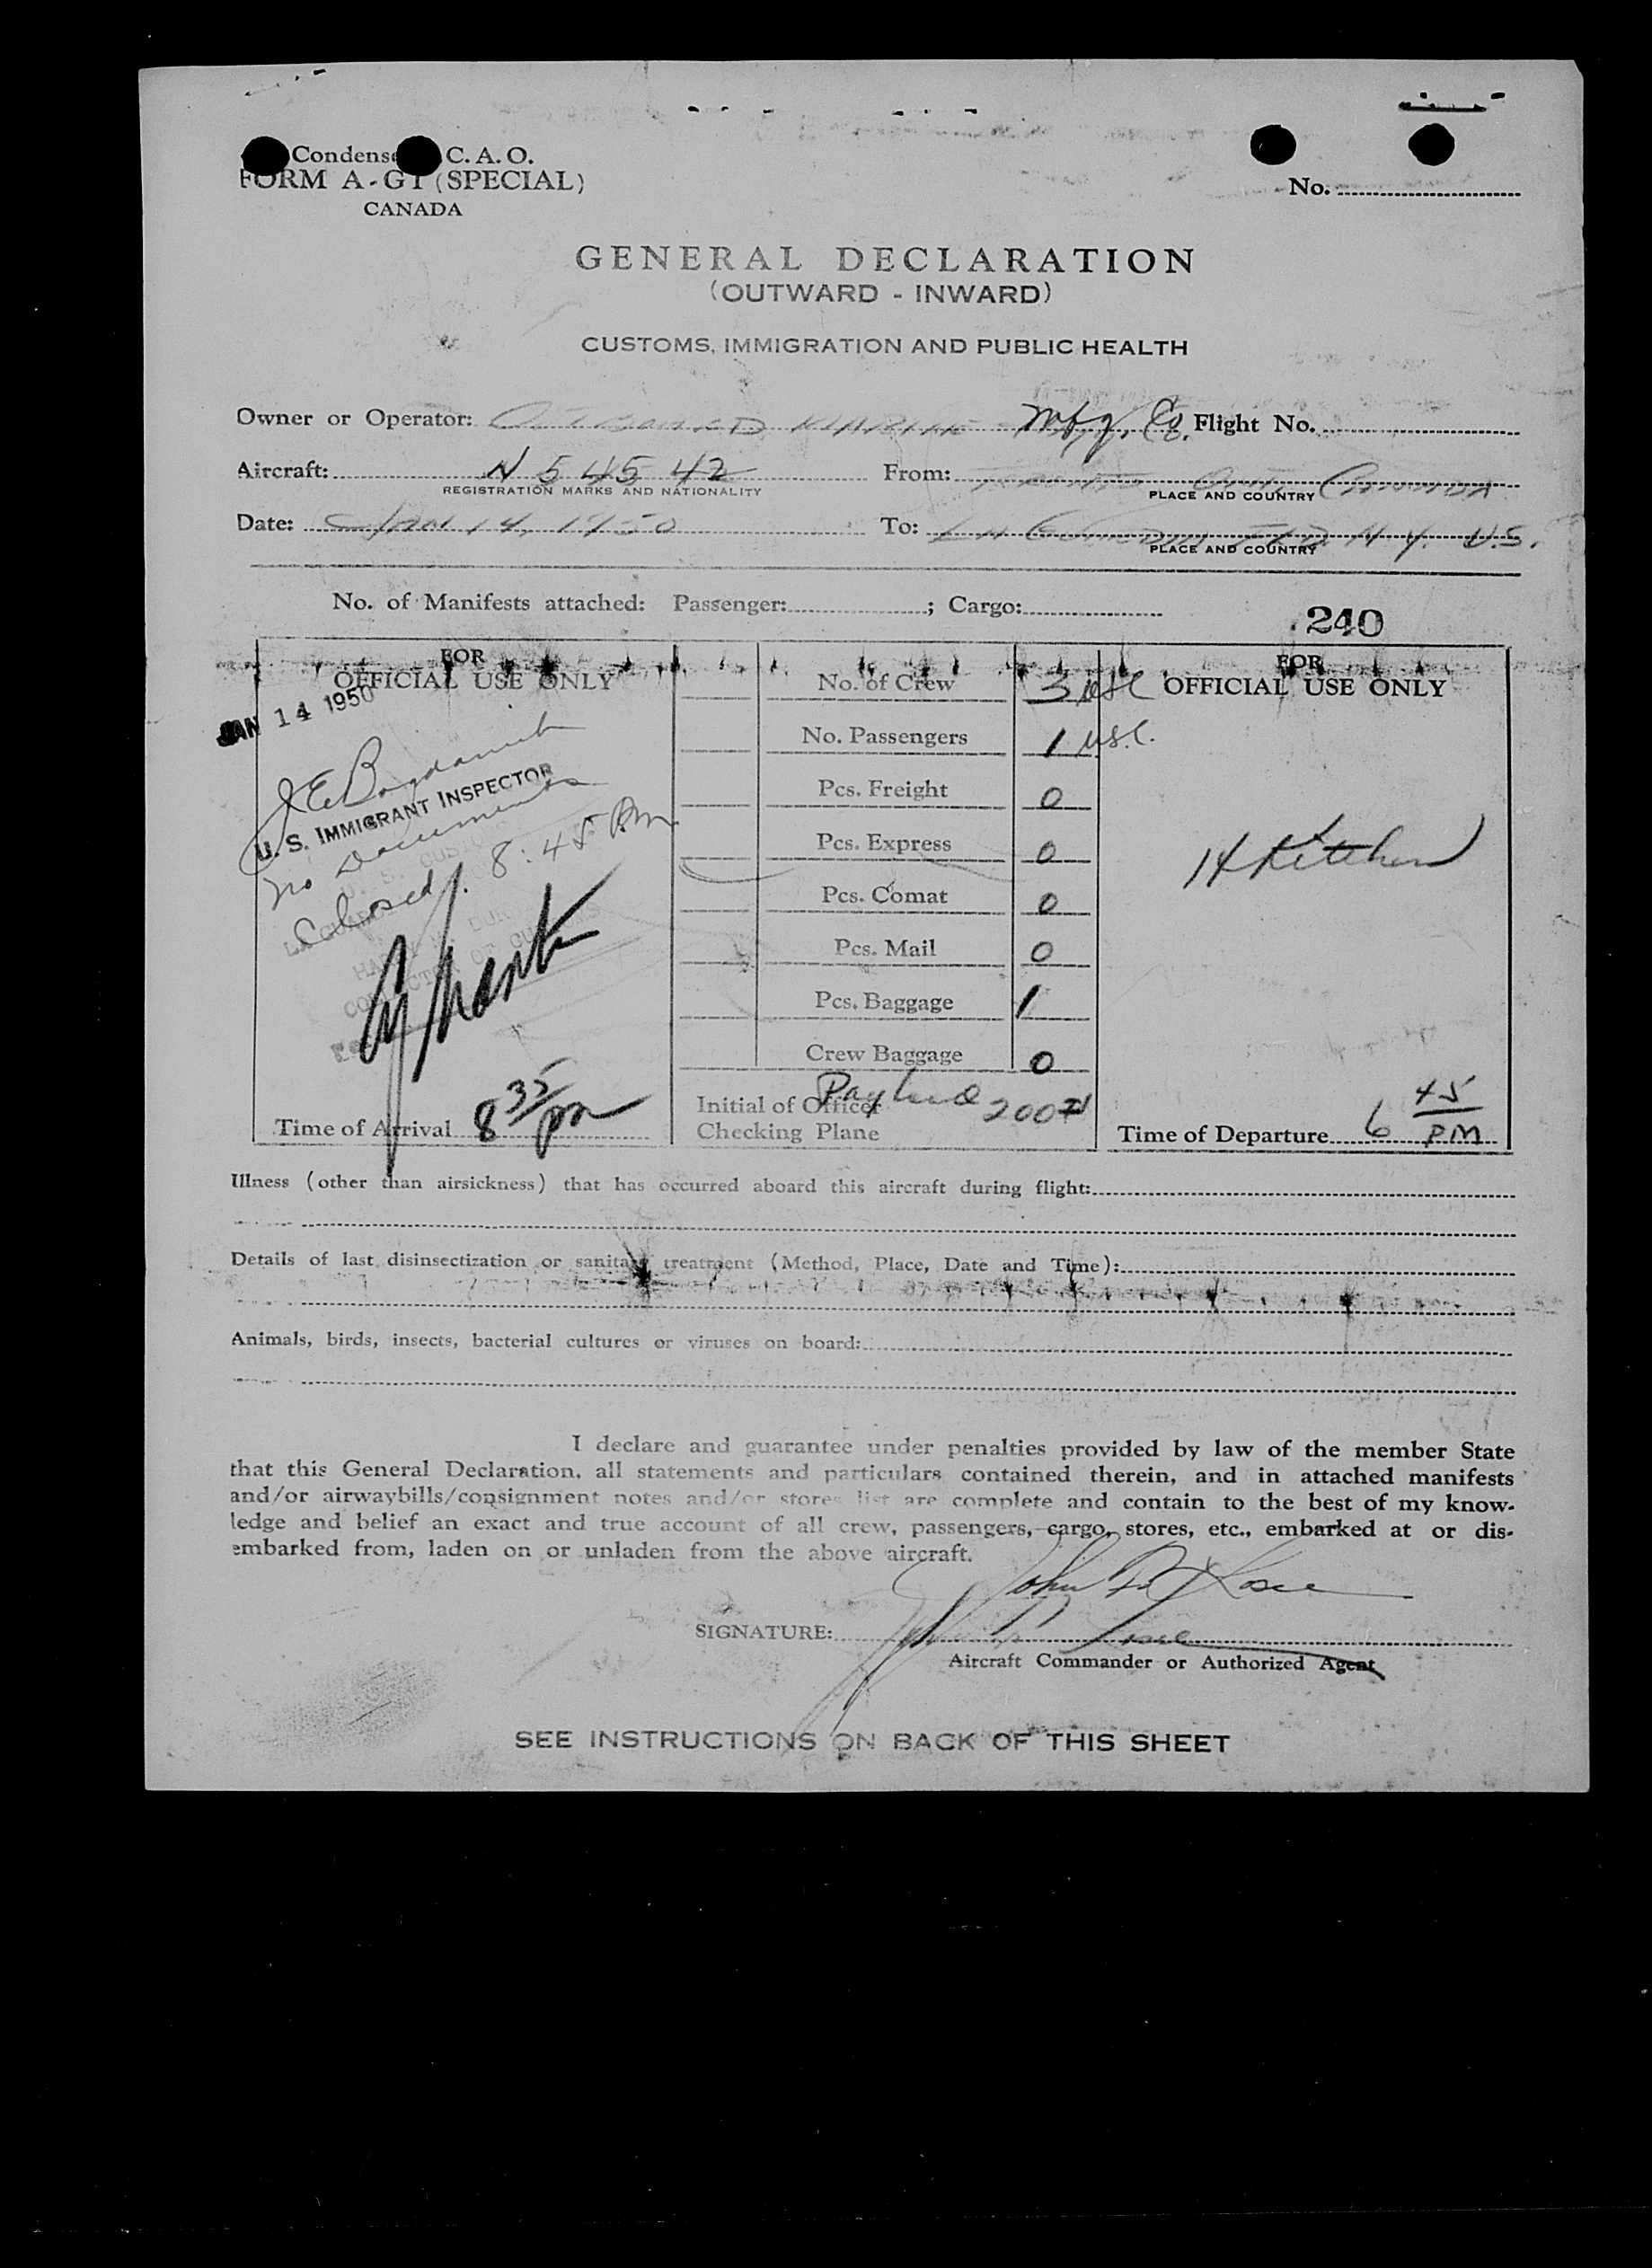 Condens C. A. O.
FORM A-G1 (SPECIAL)
CANADA
No.
GENERAL DECLARATION
(OUTWARD - INWARD)
CUSTOMS, IMMIGRATION AND PUBLIC HEALTH
Owner or Operator: OUTBOARD MARINE Mfg. Co. Flight No.
Aircraft: N 54542 From: Toronto Ont. Canada
REGISTRATION MARKS AND NATIONALITY PLACE AND COUNTRY
Date: JAN 14, 1950 To: La Guardia FLD. N.Y. U.S.
PLACE AND COUNTRY
No. of Manifests attached: Passenger: ; Cargo:
240
FOR
OFFICIAL USE ONLY
JAN 14 1950
U. S. IMMIGRANT INSPECTOR
No Documents
Closed 8:45 Pm
Time of Arrival 8 35 pm
No. of Crew 3 usc
No. Passengers 1 usc.
Pcs. Freight 0
Pcs. Express 0
Pcs. Comat 0
Pcs. Mail 0
Pcs. Baggage 1
Crew Baggage 0
Initial of Officer
Checking Plane
FOR
OFFICIAL USE ONLY
Time of Departure 6 45 PM
Illness (other than airsickness) that has occurred aboard this aircraft during flight:
Details of last disinsectization or sanitary treatment (Method, Place, Date and Time):
Animals, birds, insects, bacterial cultures or viruses on board:
I declare and guarantee under penalties provided by law of the member State
that this General Declaration, all statements and particulars contained therein, and in attached manifests
and/or airwaybills/consignment notes and/or stores list are complete and contain to the best of my know-
ledge and belief an exact and true account of all crew, passengers, cargo, stores, etc., embarked at or dis-
embarked from, laden on or unladen from the above aircraft.
John
SIGNATURE:
Aircraft Commander or Authorized Agent
SEE INSTRUCTIONS ON BACK OF THIS SHEET